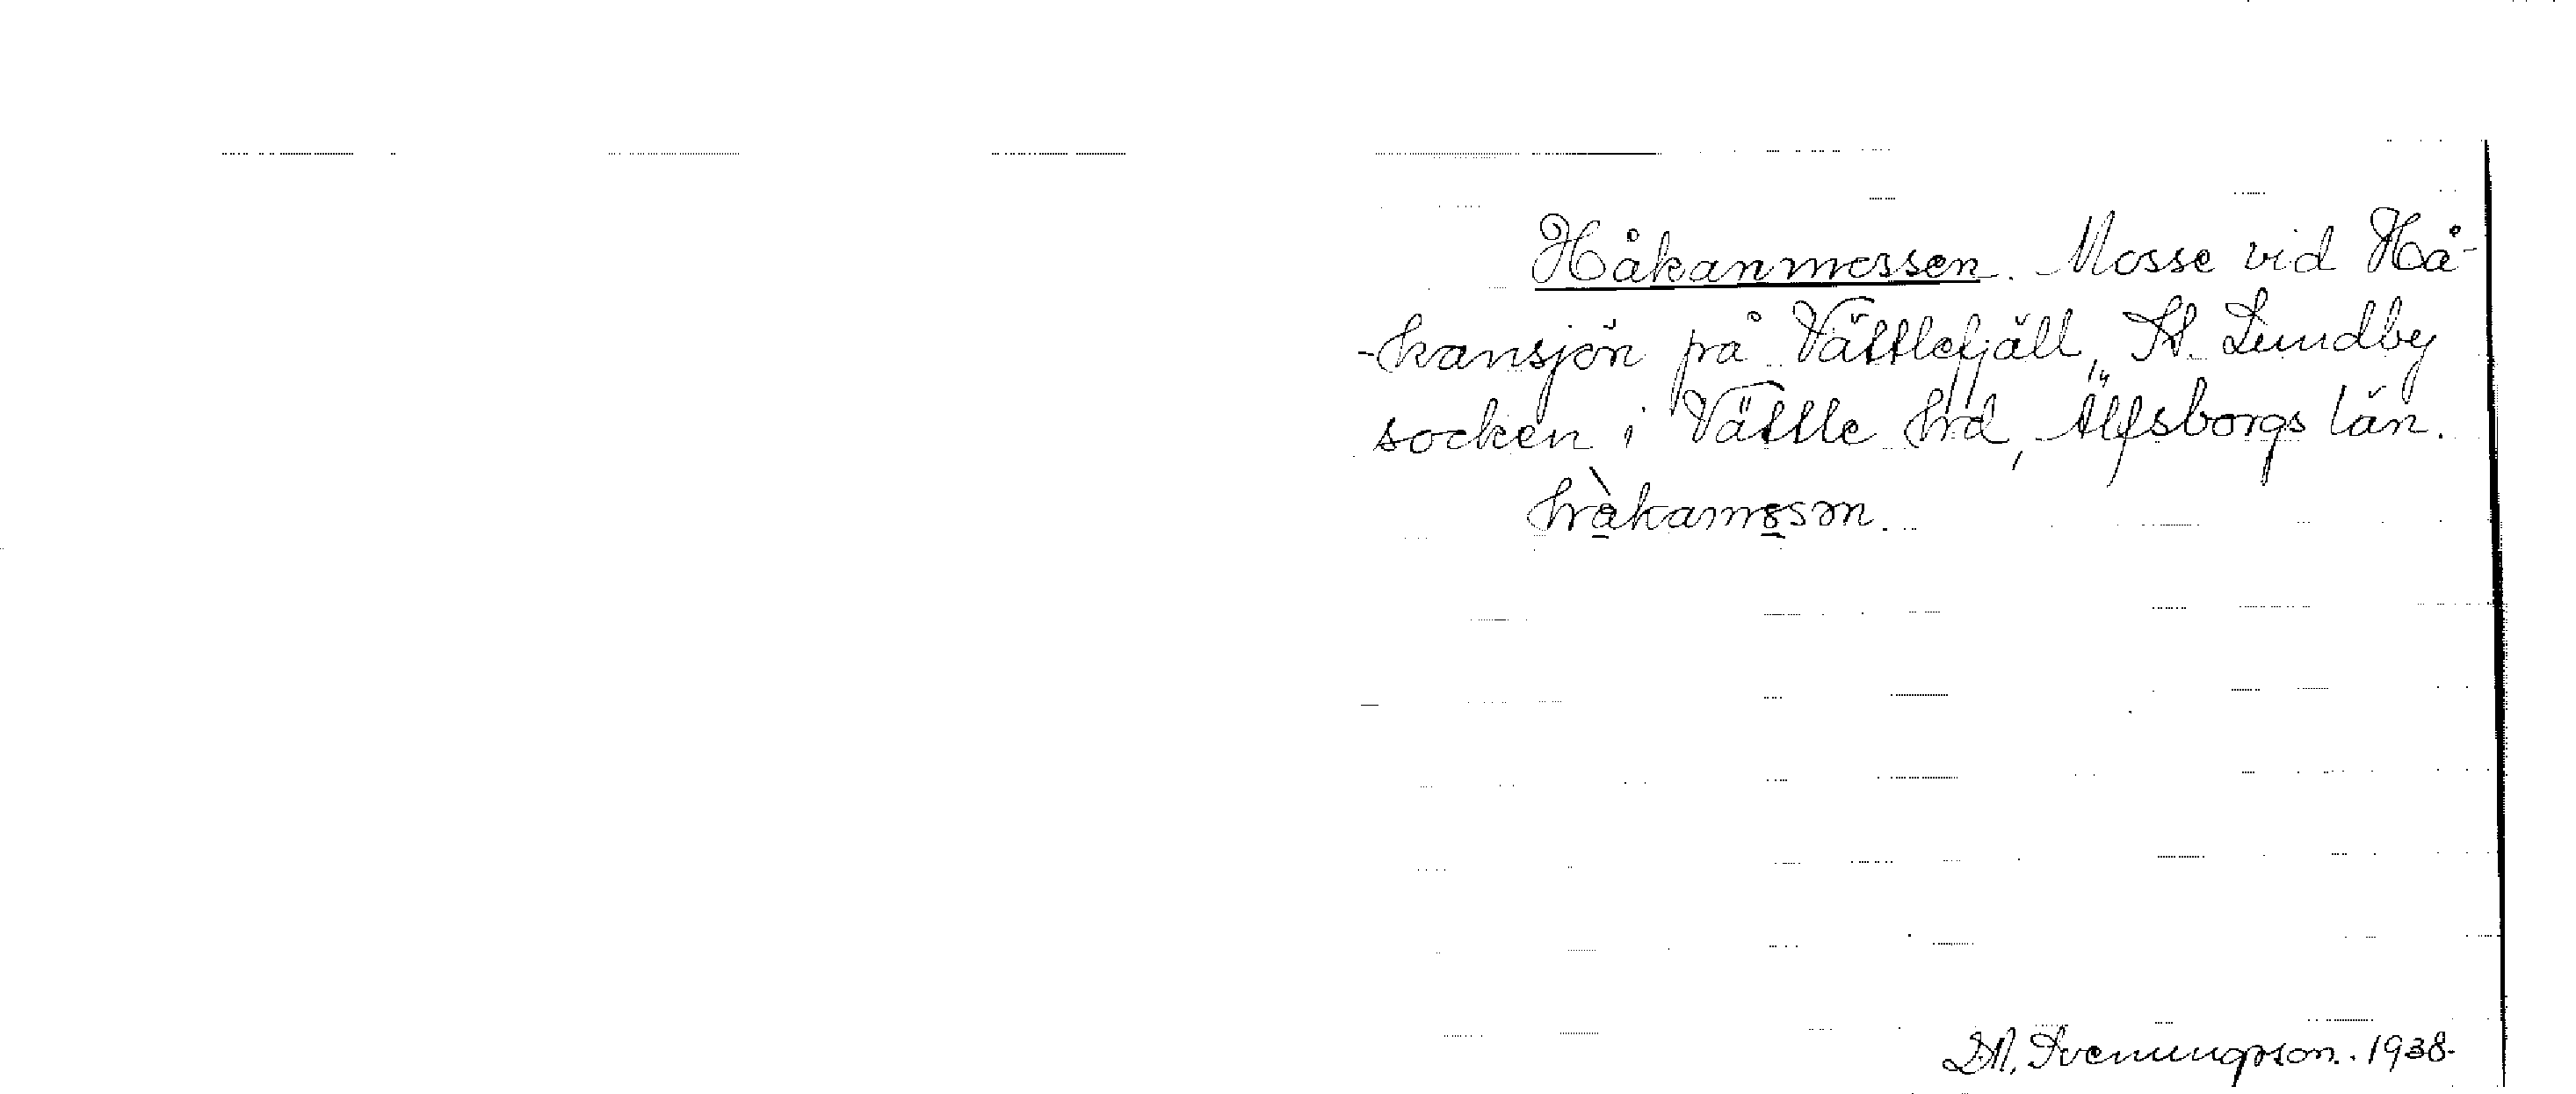 Håkanmossen. Mosse vid Hå-
-kansjön på Vättlefjäll, St. Lundby
socken i Vättle hrd, Älfsborgs län.
Svenungsson. 1938.